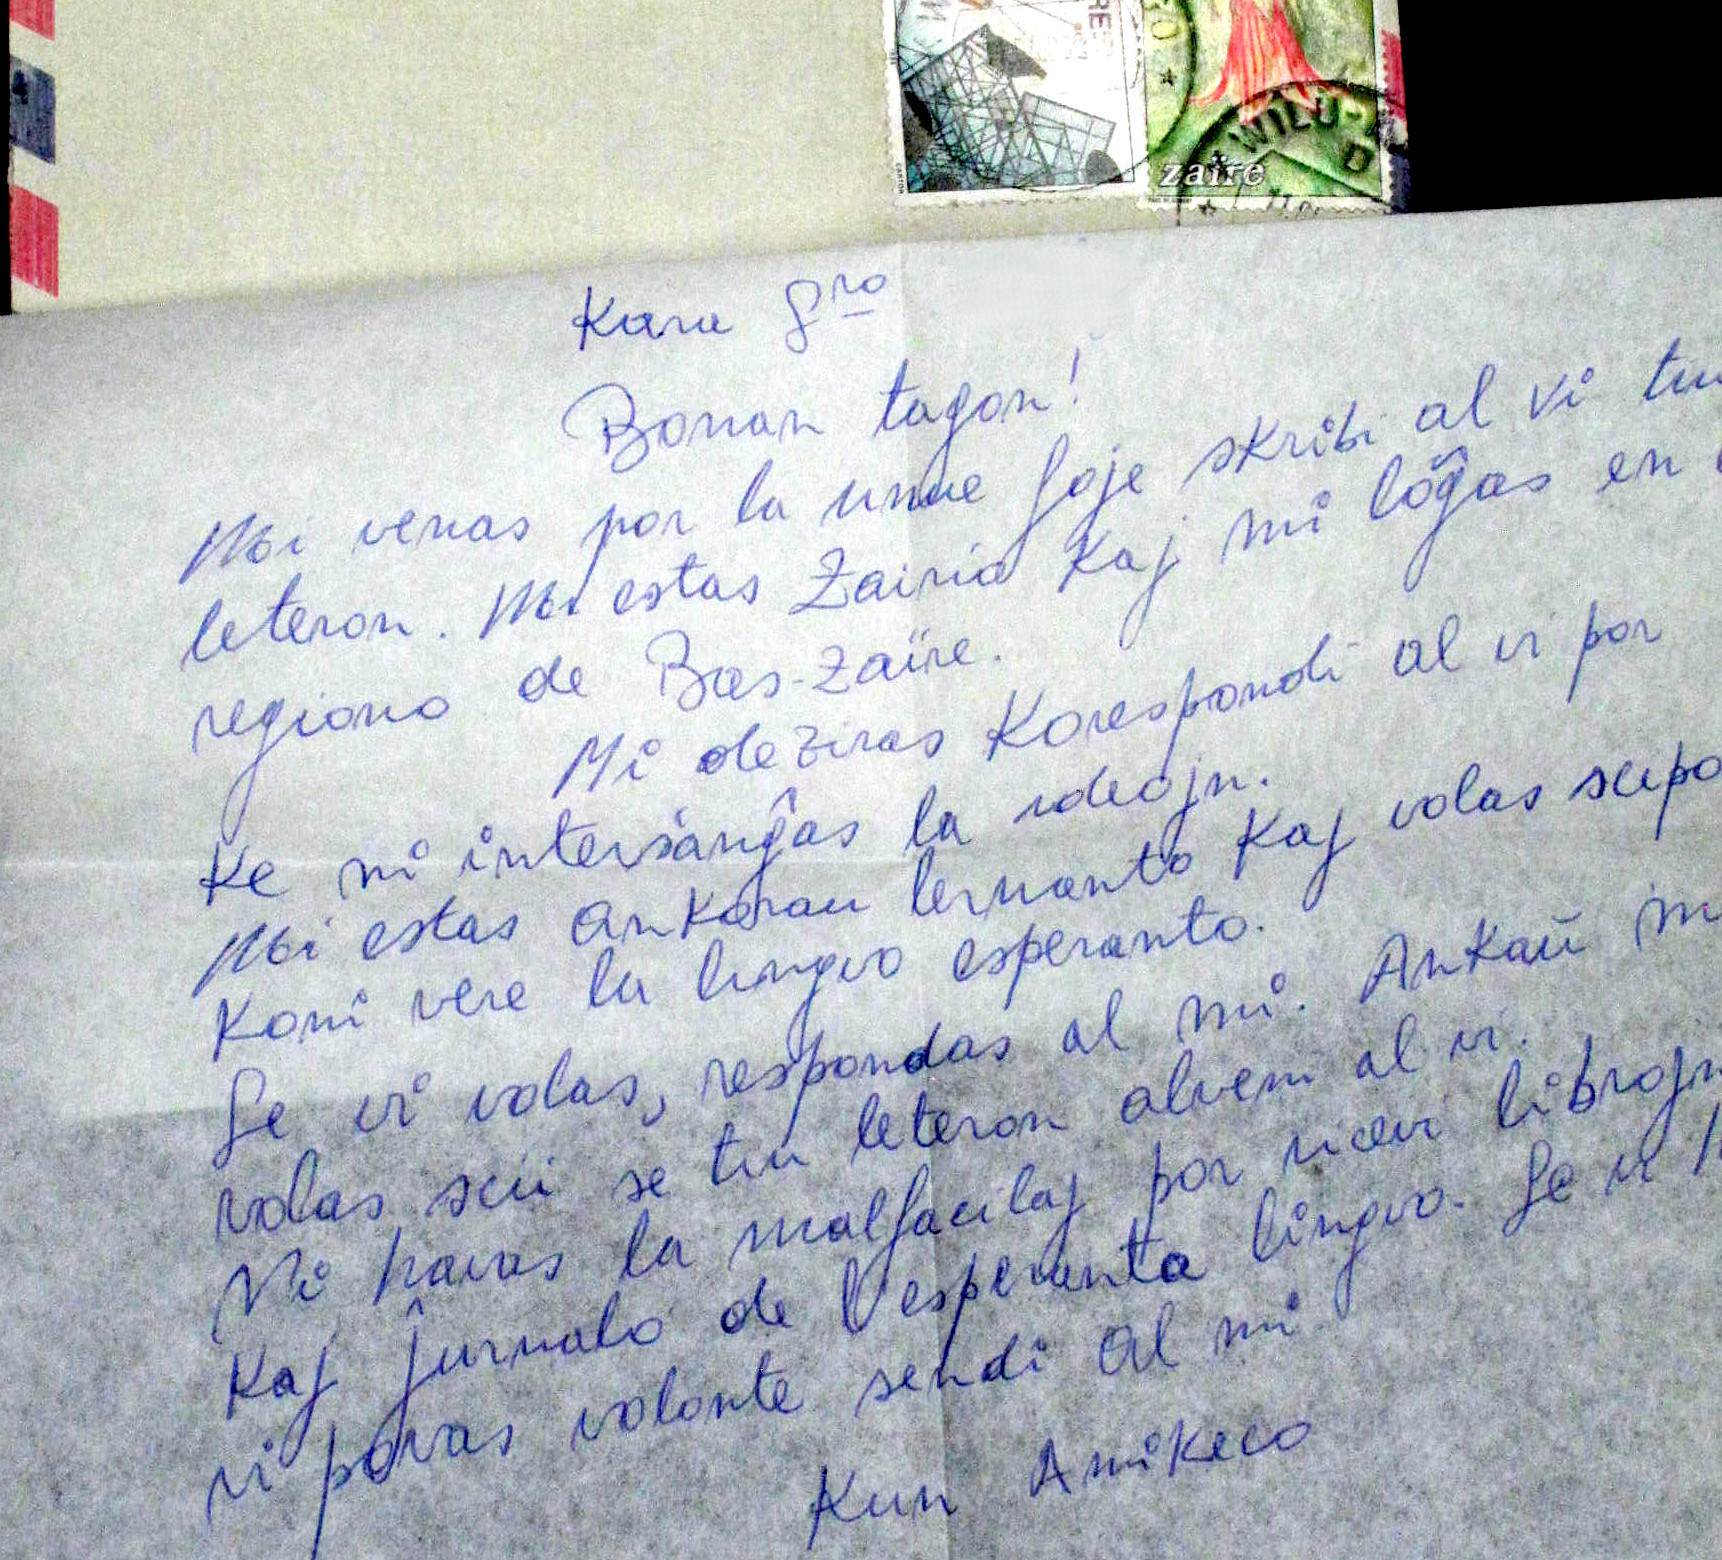 zaïre
Kara Sro
Bonan tagon!
Mi venas por la unue foje skribi al vi tiu
leteron. Mi estas Zairia kaj mi lôĝas en
regiono de Bas-Zaïre.
Mi deziras korespondi al vi por
ke ni interŝanĝas la ideojn.
Mi estas ankorau lernanto kaj volas scipo
koni vere la lingvo esperanto.
Se vi volas, respondas al mi. Ankaŭ m
volas scii se tiu leteron alveni al vi.
Ni havas la malfacilaj por ricevi librojn
kaj ĵurnalo de l'esperanta lingvo. Se vi h
vi povas volonte sendi al mi.
Kun Amikeco